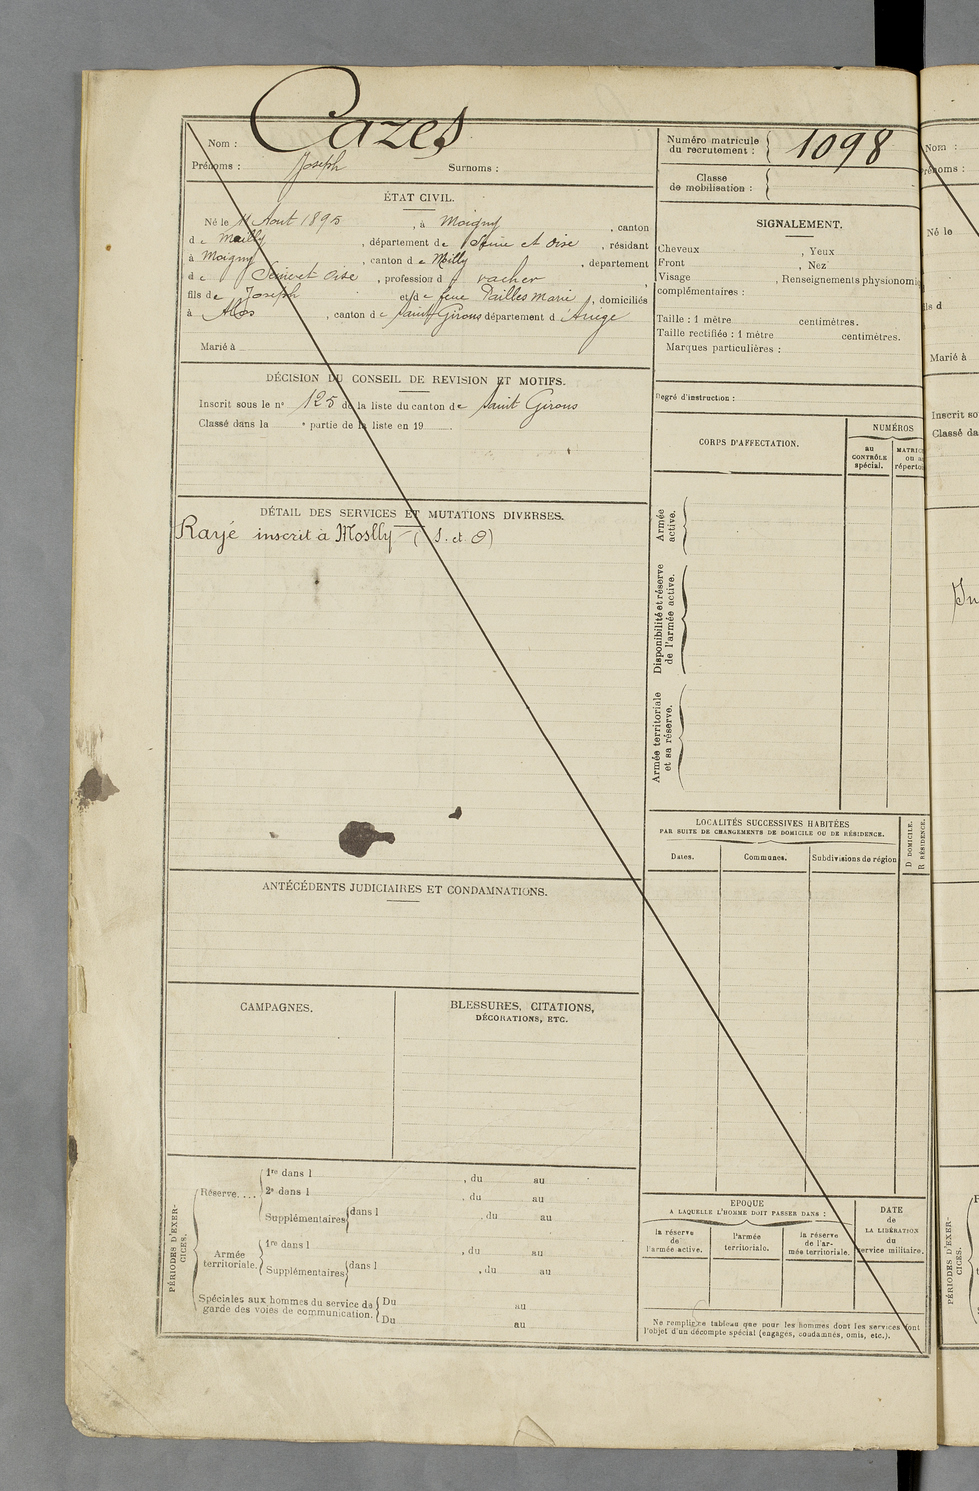 Nom : Cazes
Prénoms : Joseph Surnoms :
Numéro matricule du recrutement : 1098
Classe de mobilisation :
ÉTAT CIVIL.
Né le 11 Aout 1895, à Moigny, canton
de Mailly, département de Seine et Oise, résidant
à Moigny, canton de Milly, département
de Seine et Oise, profession d vacher
fils de Joseph et de feue Pailles Marie, domiciliés
à Alos, canton de Saint Girons département d'Ariège
Marié à
SIGNALEMENT.
Cheveux , Yeux
Front , Nez
Visage , Renseignements physionomi
complémentaires :
Taille : 1 mètre centimètres.
Taille rectifiée : 1 mètre centimètres.
Marques particulières :
Degré d'instruction :
DÉCISION DU CONSEIL DE REVISION ET MOTIFS.
Inscrit sous le n° 125 de la liste du canton de Saint Girons
Classé dans la e partie de la liste en 19
DÉTAIL DES SERVICES ET MUTATIONS DIVERSES.
Rayé inscrit à Moslly (S. et O)
CORPS D'AFFECTATION.
NUMÉROS
au CONTRÔLE spécial.
MATRIC ou a répertoi
Armée active.
Disponibilité et réserve de l'armée active.
Armée territoriale et sa réserve.
LOCALITÉS SUCCESSIVES HABITÉES
PAR SUITE DE CHANGEMENTS DE DOMICILE OU DE RÉSIDENCE.
Dates. Communes. Subdivisions de région
D DOMICILE.
R RÉSIDENCE.
ANTÉCÉDENTS JUDICIAIRES ET CONDAMNATIONS.
CAMPAGNES.
BLESSURES, CITATIONS,
DÉCORATIONS, ETC.
PÉRIODES D'EXERCICES.
Réserve....
1re dans l , du au
2e dans l , du au
Supplémentaires dans l , du au
Armée territoriale.
1re dans l , du au
Supplémentaires dans l , du au
Spéciales aux hommes du service de garde des voies de communication.
Du au
Du au
EPOQUE
A LAQUELLE L'HOMME DOIT PASSER DANS :
la réserve de l'armée active.
l'armée territoriale.
la réserve de l'armée territoriale.
DATE de LA LIBÉRATION du service militaire.
Ne remplir ce tableau que pour les hommes dont les services font
l'objet d'un décompte spécial (engagés, condamnés, omis, etc.).
Nom :
Prénoms :
Né le
ils d
Marié à
Inscrit so
Classé da
In
PÉRIODES D'EXERCICES.